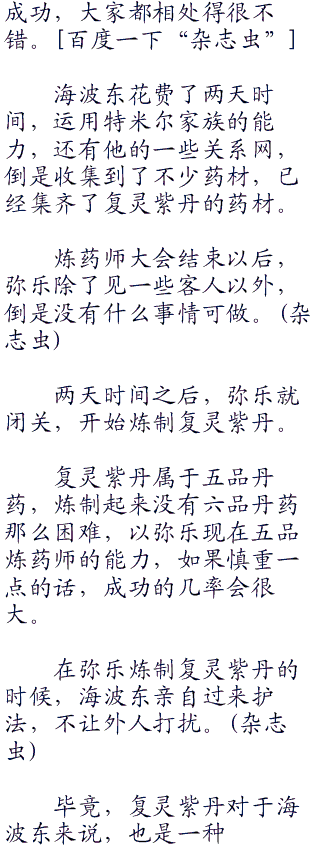 成功，大家都相处得很不
错。[百度一下“杂志虫”]
海波东花费了两天时
间，运用特米尔家族的能
力，还有他的一些关系网，
倒是收集到了不少药材，已
经集齐了复灵紫丹的药材。
炼药师大会结束以后，
弥乐除了见一些客人以外，
倒是没有什么事情可做。(杂
志虫)
两天时间之后，弥乐就
闭关，开始炼制复灵紫丹。
复灵紫丹属于五品丹
药，炼制起来没有六品丹药
那么困难，以弥乐现在五品
炼药师的能力，如果慎重一
点的话，成功的几率会很
大。
在弥乐炼制复灵紫丹的
时候，海波东亲自过来护
法，不让外人打扰。(杂志
虫)
毕竟，复灵紫丹对于海
波东来说，也是一种